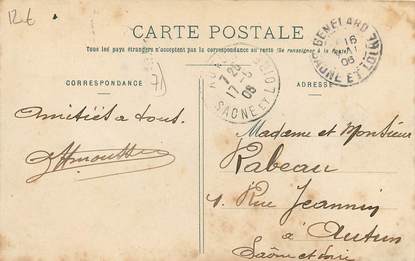 12€
CARTE POSTALE
Tous les pays étrangers n'acceptent pas la correspondance au recto
CORRESPONDANCE
71
ADRESSE
GENELARD
16
06
SAONE ET LOIRE
7 25
17 -5
06
SAONE ET LOIRE
Amitiés à tous.
Madame et Monsieur
Rabeau
Rue Jeannin
à Autun
Saône et Loire